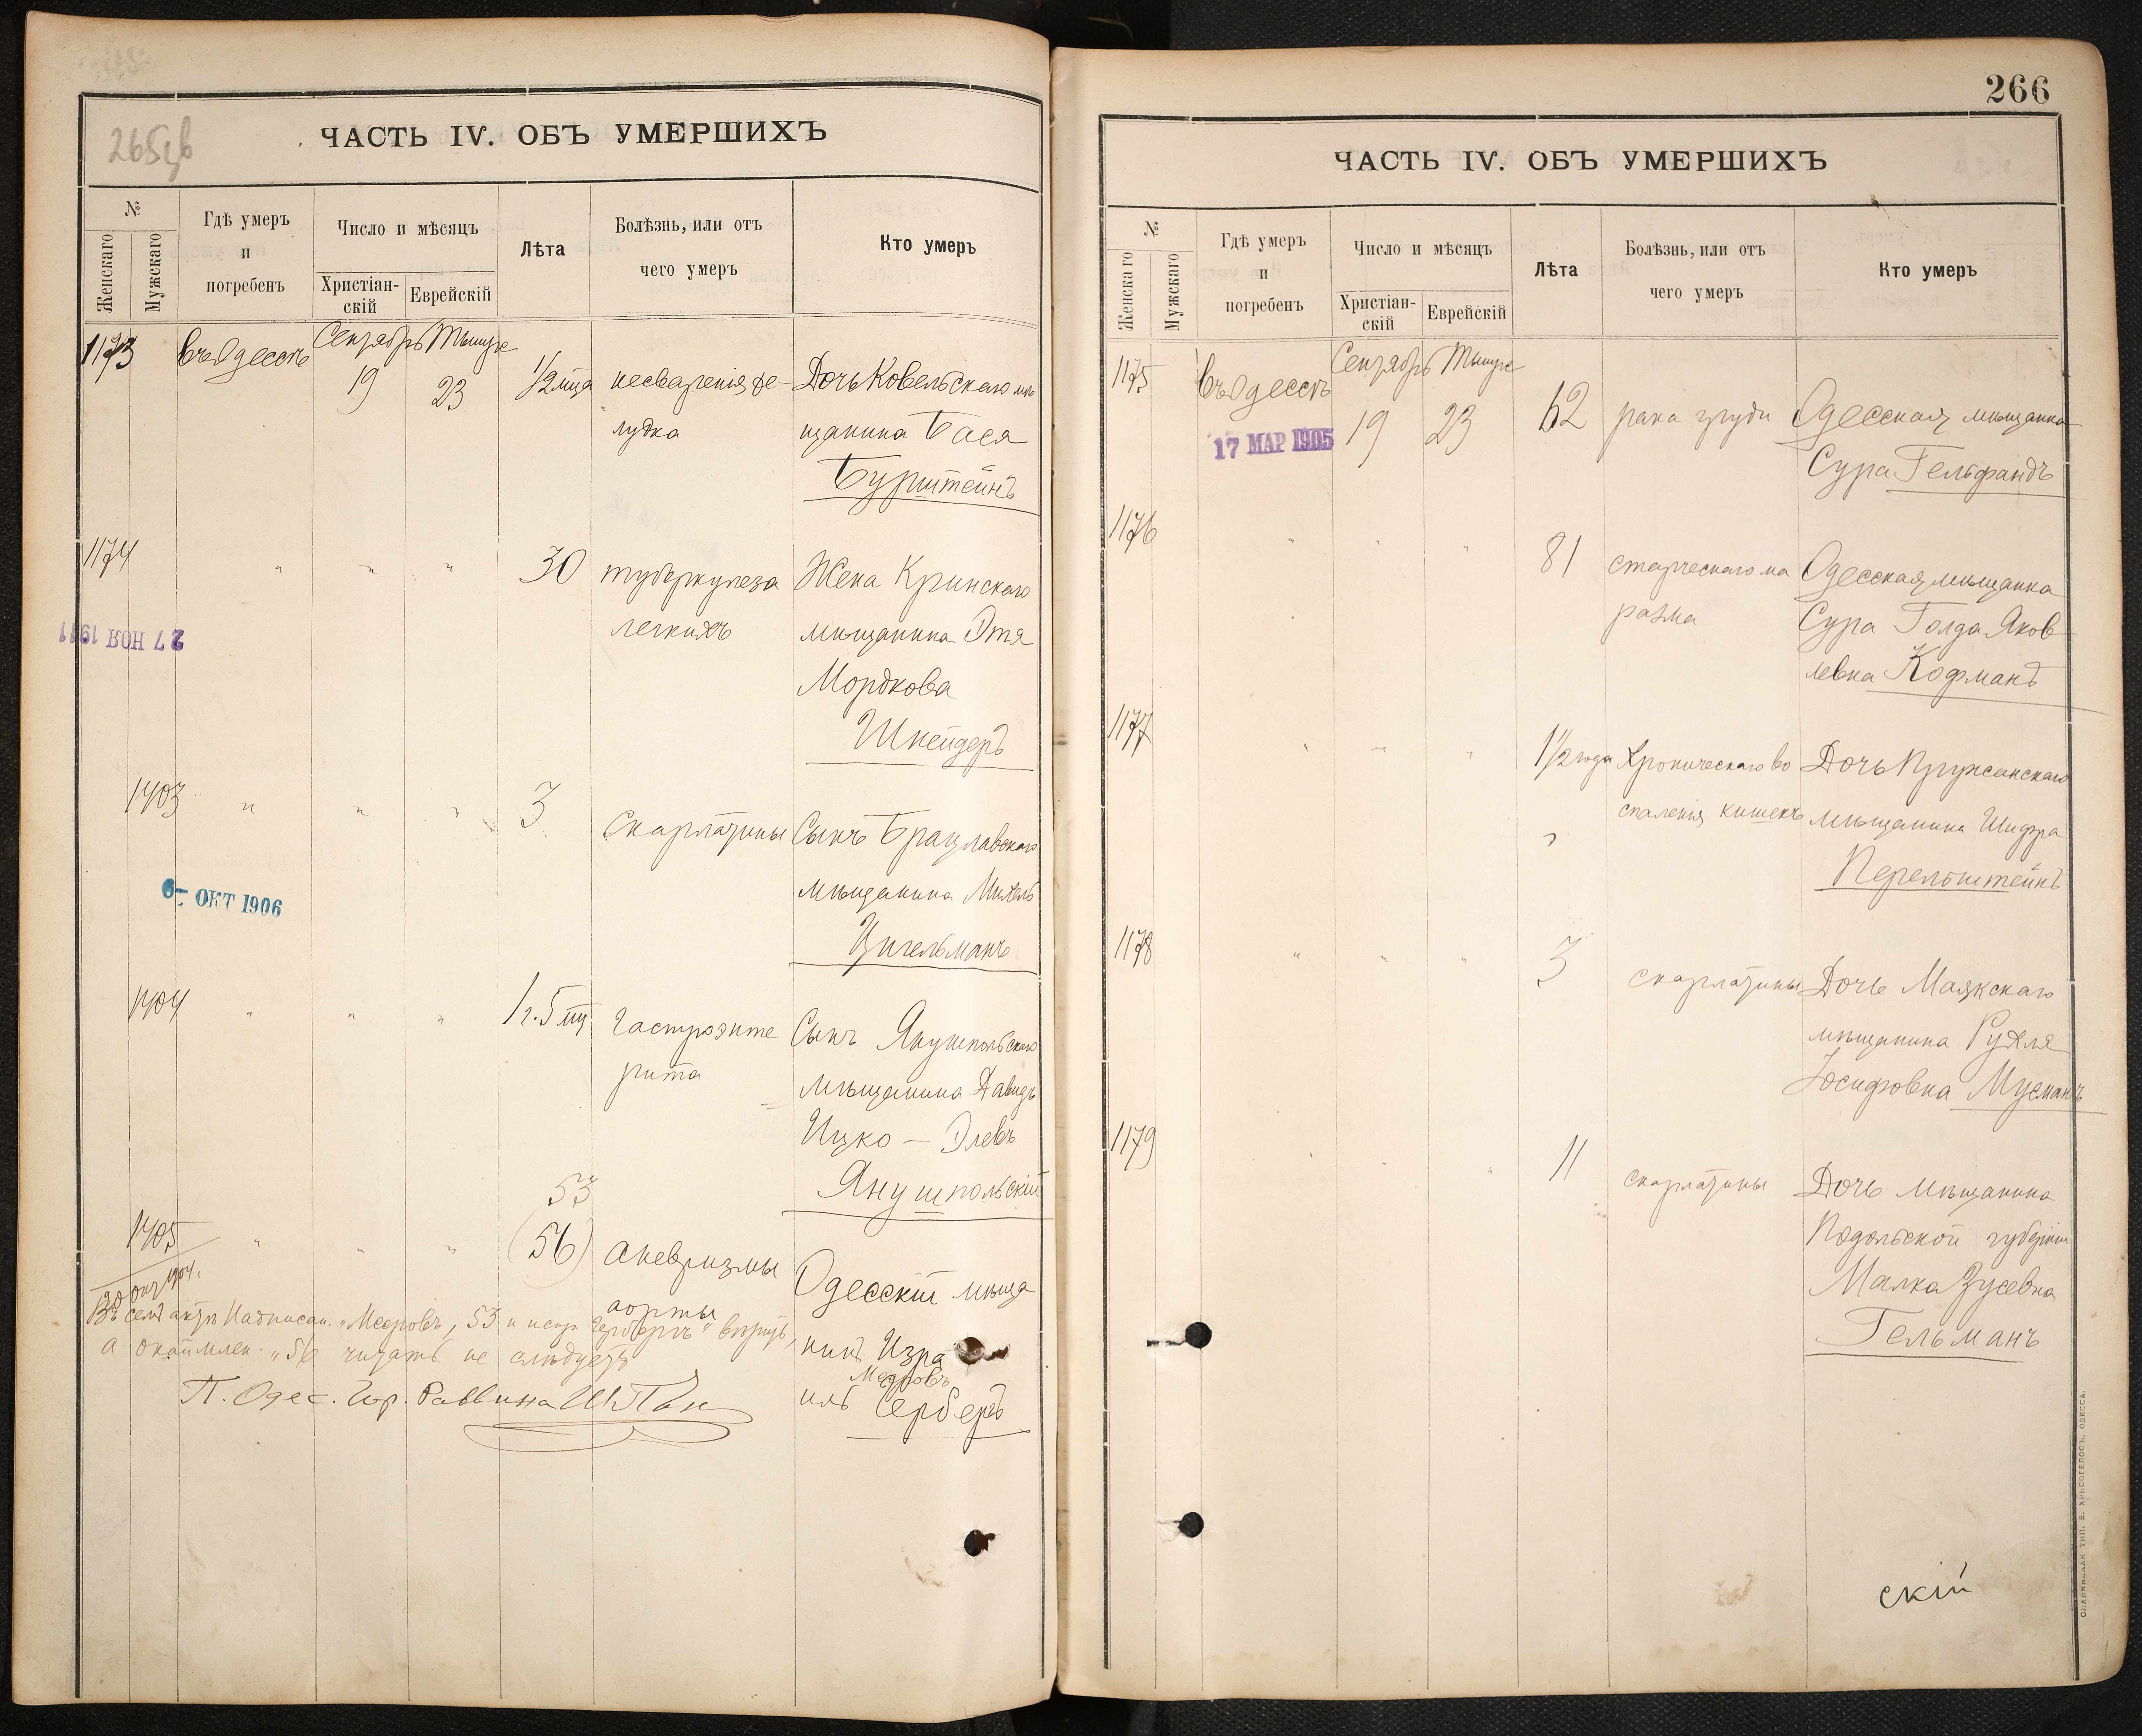 265об
ЧАСТЬ IV. ОБЪ УМЕРШИХЪ
№
Женскаго
Мужскаго
Гдѣ умеръ
и
погребенъ
Число и мѣсяцъ
Христіан-
скій
Еврейскій
Лѣта
Болѣзнь, или отъ
чего умеръ
Кто умеръ
1173
въ Одессѣ
Сентябрь Тишре
19
23
1/2 мца
несваренія же-
лудка
Дочь Ковельскаго мѣ
щанина Бася
Бурштейнъ
1174
" " "
30
туберкулеза
легкихъ
Жена Кринскаго
мѣщанина Этя
Мордкова
Шнейдеръ
27 НОЯ 1911
1403
" " "
3
Скарлатины
Сынъ Брацлавскаго
мѣщанина Михель
Цигельманъ
6- ОКТ 1906
1404
" " "
1 г. 5 мц
Гастроэнте
рита
Сынъ Янушпольскаго
мѣщанина Давидъ
Ицко — Элевъ
Янушпольскій
53
1405
" " "
(56)
аневризмы
аорты
Одесскій мѣща
нинъ Изра
Мееровъ
иль Серберъ
20 окт 1904.
Въ семъ актѣ надписан. "Мееровъ, 53 и испр. " вѣрить,
а окаймлен. "56 читать не слѣдуетъ
П. Одес. Гор. Раввина
266
ЧАСТЬ IV. ОБЪ УМЕРШИХЪ
№
Женскаго
Мужскаго
Гдѣ умеръ
и
погребенъ
Число и мѣсяцъ
Христіан-
скій
Еврейскій
Лѣта
Болѣзнь, или отъ
чего умеръ
Кто умеръ
1175
въ Одессѣ
Сентябрь Тишре
19
23
62
рака груди
Одесская мѣщанка
Сура Гельфандъ
17 МАР 1905
1176
" " "
81
старческаго ма
разма
Одесская мѣщанка
Сура Голда Яков
левна Кофманъ
1177
" " "
1 1/2 года
Хроническаго во
спаленія кишекъ
Дочь Пружанскаго
мѣщанина Шифра
Перельштейнъ
1178
" " "
3
скарлатины
Дочь Маякскаго
мѣщанина Рухля
Іосифовна Мусманъ
1179
" " "
11
скарлатины
Дочь мѣщанина
Подольской губерніи
Малка Зусевна
Гельманъ
скій
СЛАВЯНСКАЯ ТИП. Е. ХРИСОГЕЛОСЪ, ОДЕССА.